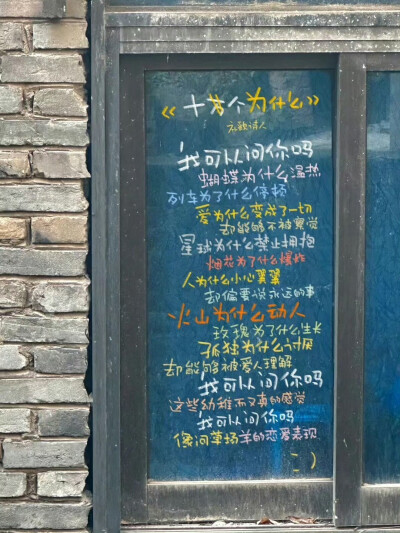 《十万个为什么》
我可以问你吗
蝴蝶为什么湿热
列车为了什么停顿
爱为什么变成了一切
却能够不被察觉
星球为什么禁止拥抱
烟花为了什么爆炸
人为什么小心翼翼
却偏要说永远的事
火山为什么动人
玫瑰为了什么生长
孤独为什么讨厌
却能够被爱人理解
我可以问你吗
这些幼稚而又真的感觉
我可以问你吗
像问草场羊的恋爱表现